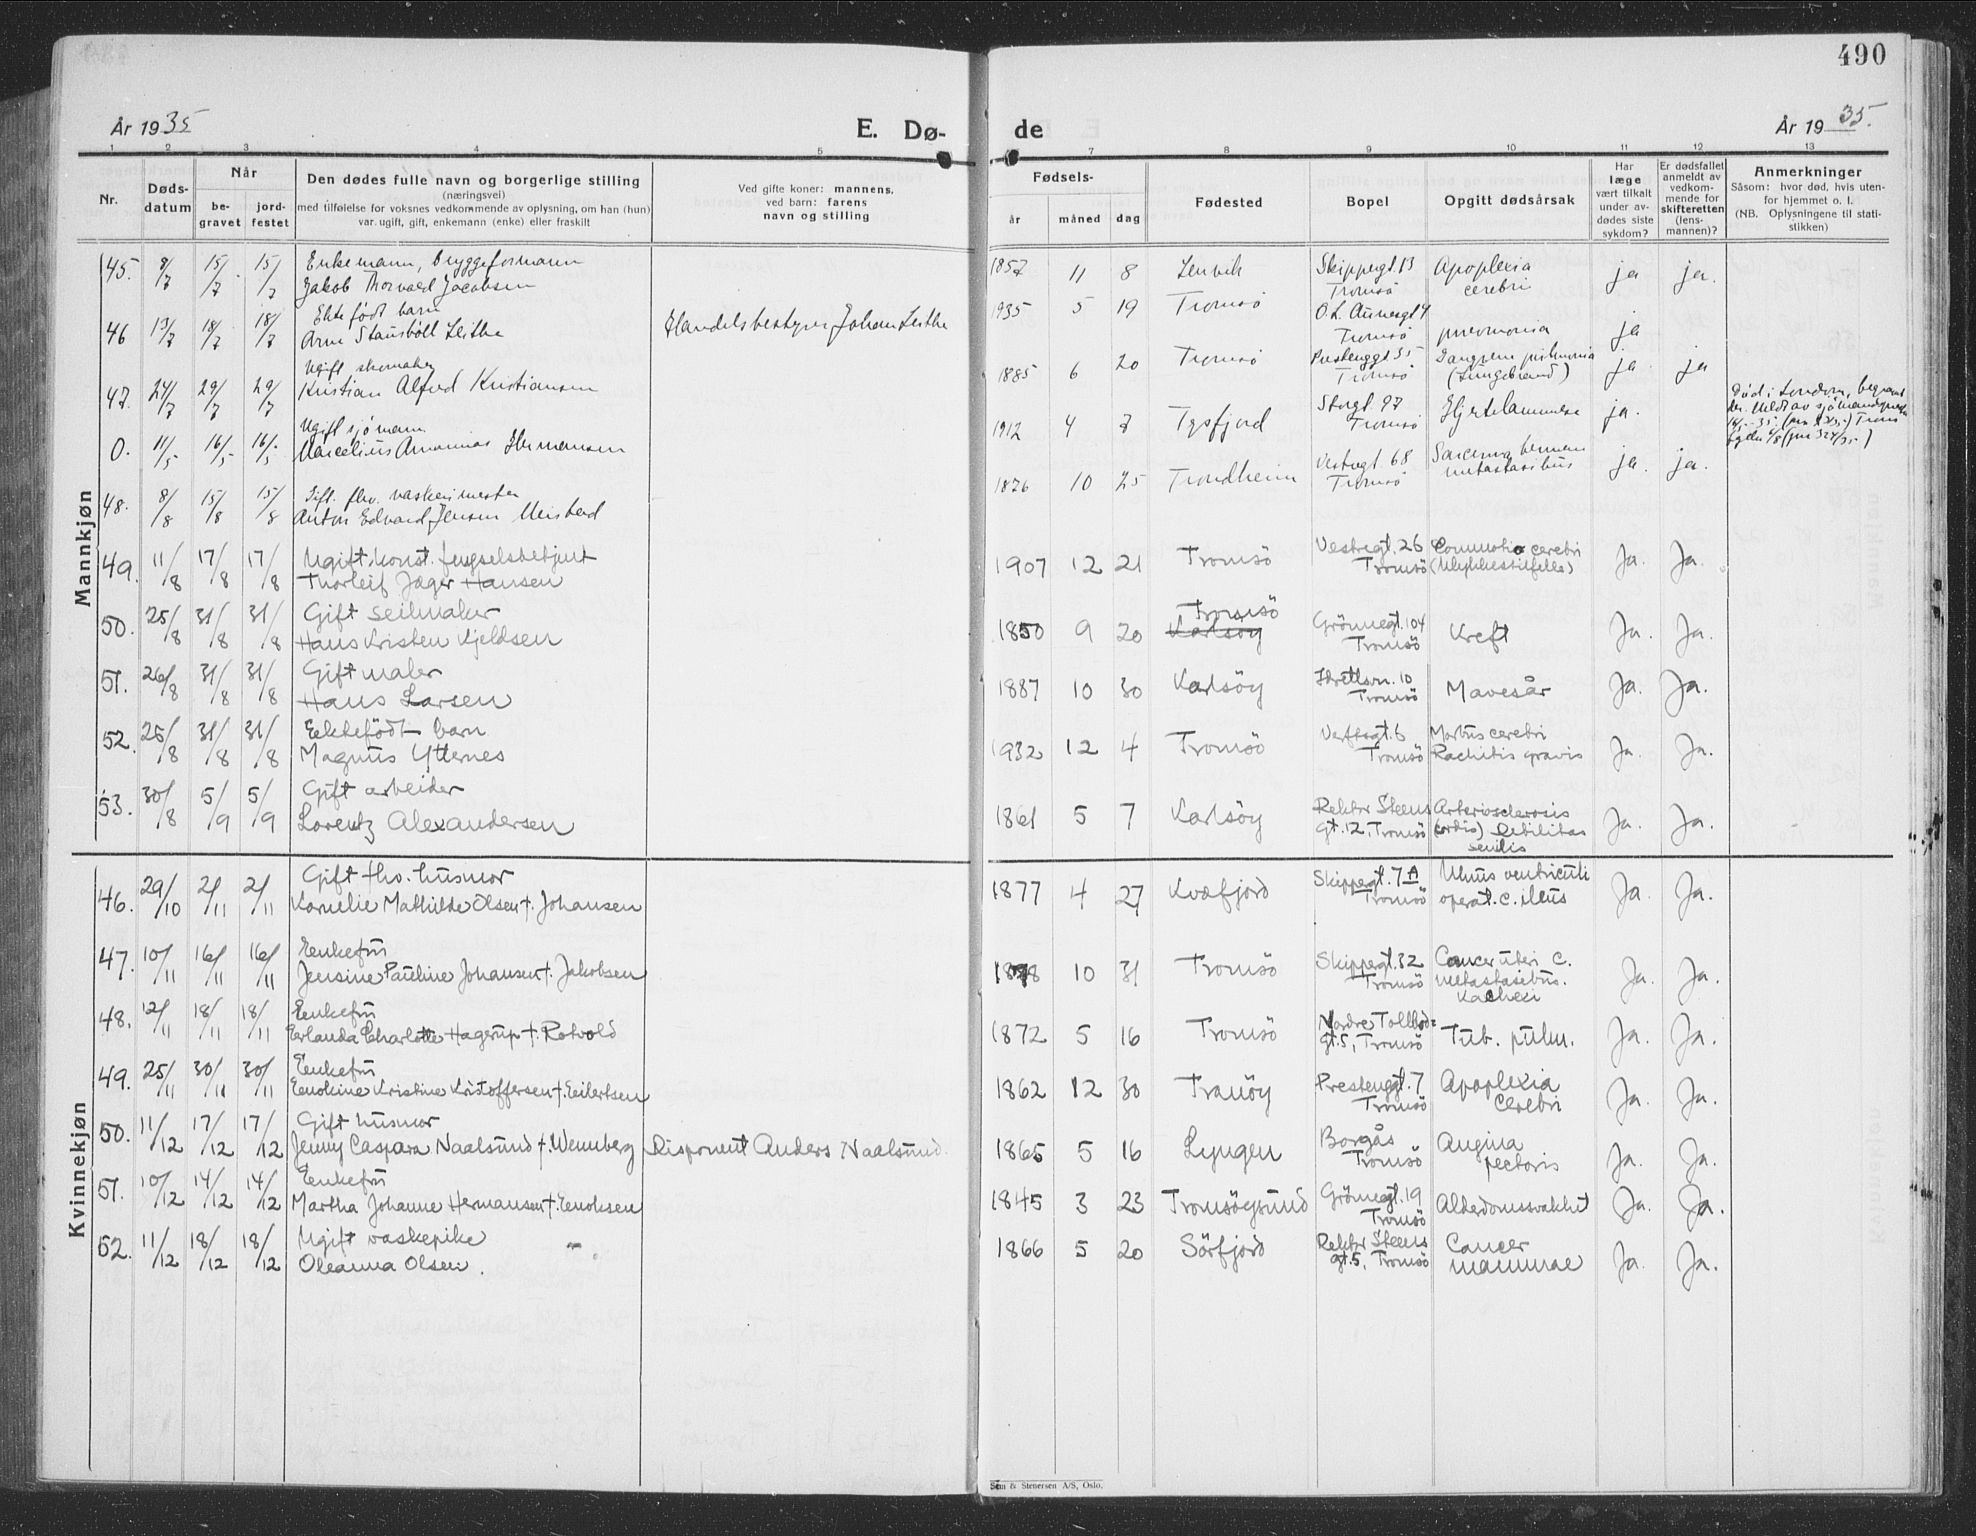 490
År 1935
E. Dø-
de
År 1935.
1 2 3 4 5 7 8 9 10 11 12 13
Nr.
Døds-
datum
Når
be-
gravet
jord-
festet
Den dødes fulle navn og borgerlige stilling
(næringsvei)
med tilføielse for voksnes vedkommende av oplysning, om han (hun)
var ugift, gift, enkemann (enke) eller fraskilt
Ved gifte koner: mannens,
ved barn: farens
navn og stilling
Fødsels-
år
måned
dag
Fødested
Bopel
Opgitt dødsårsak
Har
læge
vært tilkalt
under av-
dødes siste
sykdom?
Er dødsfallet
anmeldt av
vedkom-
mende for
skifteretten
(lens-
mannen)?
Anmerkninger
Såsom: hvor død, hvis uten-
for hjemmet o. l.
(NB. Oplysningene til stati-
stikken)
Mannkjøn
45. 8/7 15/7 15/7 Enkemann, bryggeformann
Jakob Thorvald Jacobsen
1857 11 8 Lenvik Skippergt. 13
Tromsö Apoplexia
cerebri ja ja.
46 13/7 18/7 18/7 Ekte født barn
Arne Stausböll Leithe
Handelsbestyrer Johan Leithe
1935 5 19 Tromsö O.L. Aunegt 4
Tromsö pneumonia ja
47. 24/7 29/7 29/7 Ugift skomaker
Kristian Alfred Kristiansen
1885 6 20 Tromsö Prestenggt 35
Tromsö
(Lungebrand) ja ja
0. 11/5 16/5 16/5 Ugift sjömann
Marcelius Ananias Hermansen
1912 4 7 Tysfjord Storgt. 97
Tromsö Hjertelammelse ja.
48. 8/8 15/8 15/8 Gift. fhv. vaskerimester
Anton Edvard Jensen
1876 10 25 Trondheim Vestregt. 68
Tromsö
metastasibus ja. ja.
49. 11/8 17/8 17/8 Ugift. konst. fengselsbetjent
Thorleif Jäger Hansen
1907 12 21 Tromsö Vestregt. 26
Tromsö Commotio cerebri
(Ulykkestilfelle) Ja. Ja.
50. 25/8 31/8 31/8 Gift seilmaker
Hans Kristen Kjeldsen
1850 9 20 Tromsö
Karlsöy Grönnegt. 104
Tromsö Kreft Ja. Ja.
51. 26/8 31/8 31/8 Gift maler
Hans Larsen
1887 10 30 Karlsöy Idrettsvn. 10
Tromsö Mavesår Ja. Ja.
52. 25/8 31/8 31/8 Eektefödt barn
Magnus Ytternes
1932 12 4 Tromsö Verftsgt. 6
Tromsö Morbus cerebri
Rachitis gravis Ja. Ja.
53. 30/8 5/9 5/9 Gift arbeider
Lorentz Alexandersen
1861 5 7 Karlsöy Rektor Steens
gt. 12, Tromsö Arteriosclerosis
(cordis) debilitas
senilis Ja. Ja.
Kvinnekjøn
46. 29/10 2/11 2/11 Gift fhv. husmor
Kornelie Mathilde Olsen f. Johansen
1877 4 27 Kvæfjord Skippergt. 7 A
Tromsö Ulcus ventriculi
operat. c. ileus Ja. Ja.
47. 10/11 16/11 16/11 Eenkefru
Jensine Pauline Johansen f. Jakobsen
1878 10 31 Tromsö Skippergt. 32
Tromsö Cancer uteri c.
metastasibus.
Kachexi Ja. Ja.
48. 12/11 18/11 18/11 Eenkefru
Erlanda Charlotte Hagerup f. Rotvold
1872 5 16 Tromsö Nordre Tollbod=
gt. 5, Tromsö Tub. pulm. Ja. Ja.
49. 25/11 30/11 30/11 Eenkefru
Eenokine Kristine Kristoffersen f. Eilertsen
1862 12 30 Tranöy Prestenggt. 7
Tromsö Apoplexia
cerebri Ja. Ja.
50. 11/12 17/12 17/12 Gift husmor
Jenny Caspara Naalsund f. Wennberg Disponent Anders Naalsund.
1865 5 16 Lyngen Borgås
Tromsö Angina
pectoris Ja. Ja.
51. 10/12 14/12 14/12 Eenkefru
Martha Johanne Hermansen f. Eenoksen
1845 3 23 Tromsöysund Grönnegt. 19
Tromsö Alderdomssvakhet Ja. Ja.
52. 11/12 18/12 18/12 Ugift vaskepike
Oleanna Olsen.
1866 5 20 Sörfjord Rektor Steens
gt. 5, Tromsö Cancer
mammae Ja. Ja.
& Stenersen A/S, Oslo.